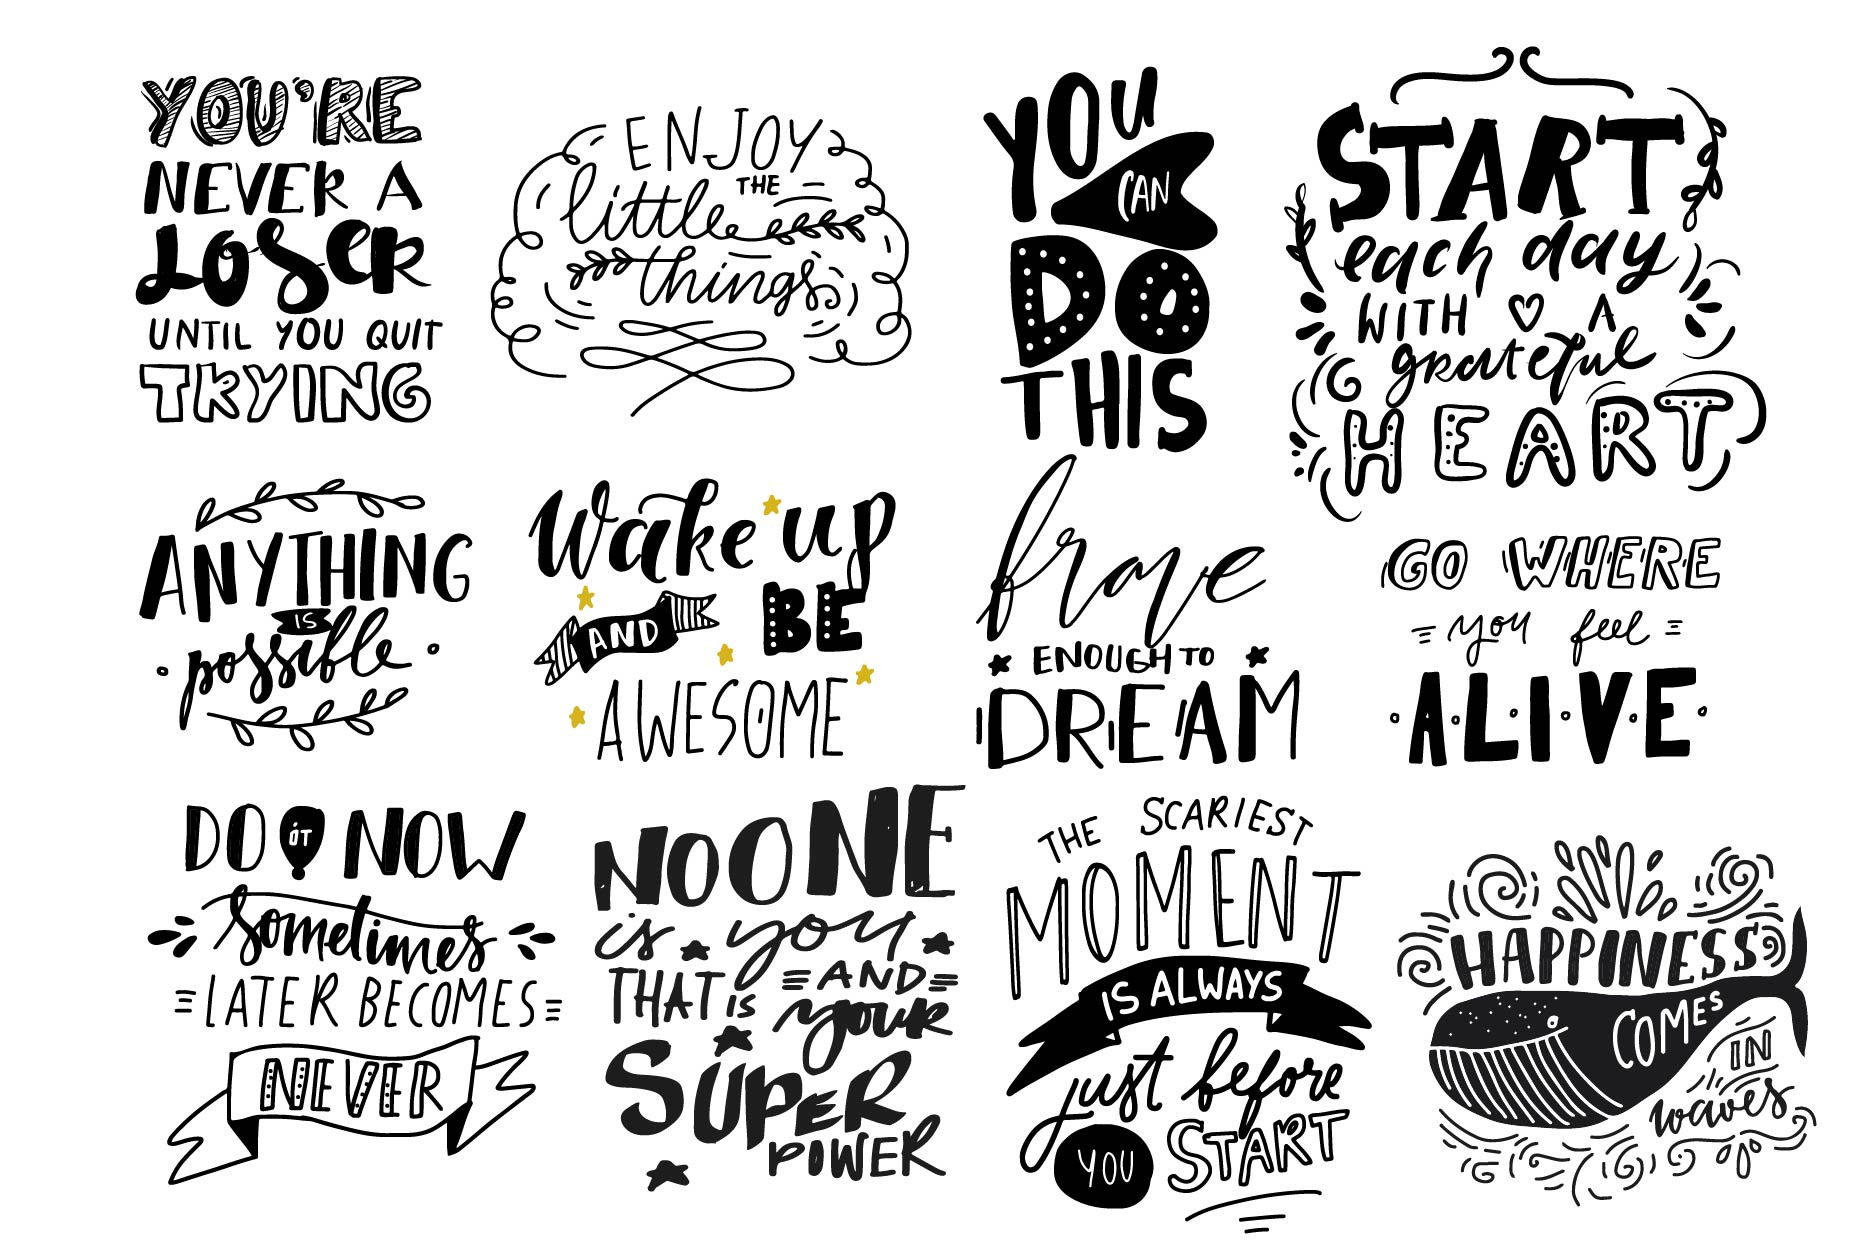 YOU'RE
NEVER A
LOSER
UNTIL YOU QUIT
TRYING
ENJOY
THE
little
things
YOU
CAN
DO
THIS
START
each day
WITH A
grateful
HEART
ANYTHING
IS
possible
Wake up
AND BE
AWESOME
brave
ENOUGH TO
DREAM
GO WHERE
you feel
ALIVE
DO OT NOW
sometimes
LATER BECOMES
NEVER
NO ONE
is you
AND
THAT IS
your
SUPER
POWER
THE SCARIEST
MOMENT
IS ALWAYS
just before
YOU START
HAPPINESS
COMES
IN
waves